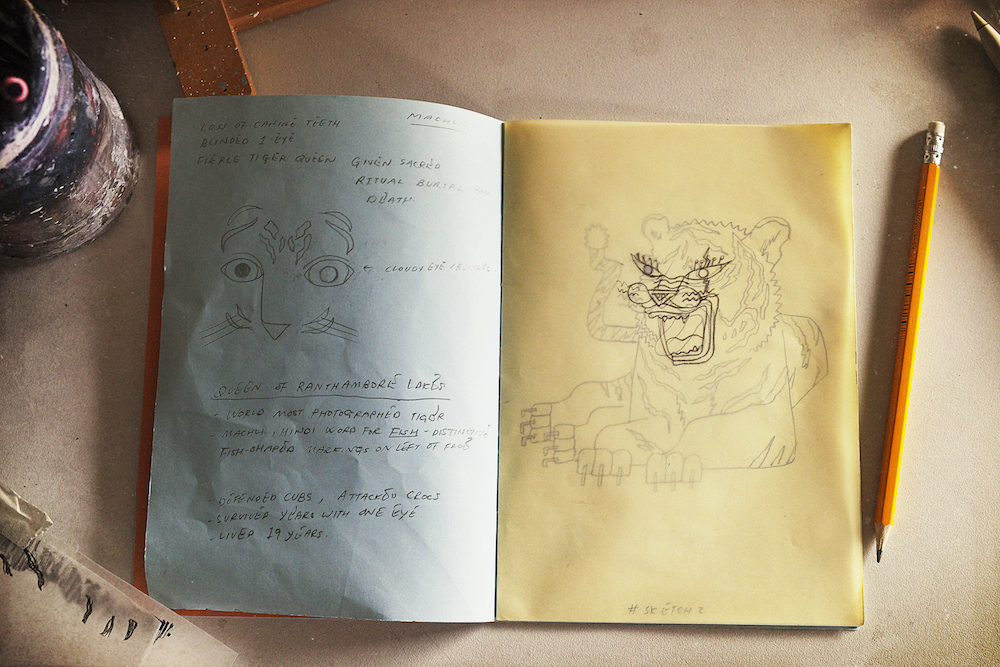 MACHLI
LOSS OF CANINE TEETH
BLINDED 1 EYE
FIERCE TIGER QUEEN GIVEN SACRED
RITUAL BURIAL
DEATH
← CLOUDY EYE
QUEEN OF RANTHAMBORE LAKES
- WORLD MOST PHOTOGRAPHED TIGER
- MACHLI, HINDI WORD FOR FISH - DISTINCTIVE
FISH-SHAPED MARKINGS ON LEFT OF
- DEFENDED CUBS, ATTACKED CROCS
- SURVIVED YEARS WITH ONE EYE
- LIVED 19 YEARS.
# SKETCH 2